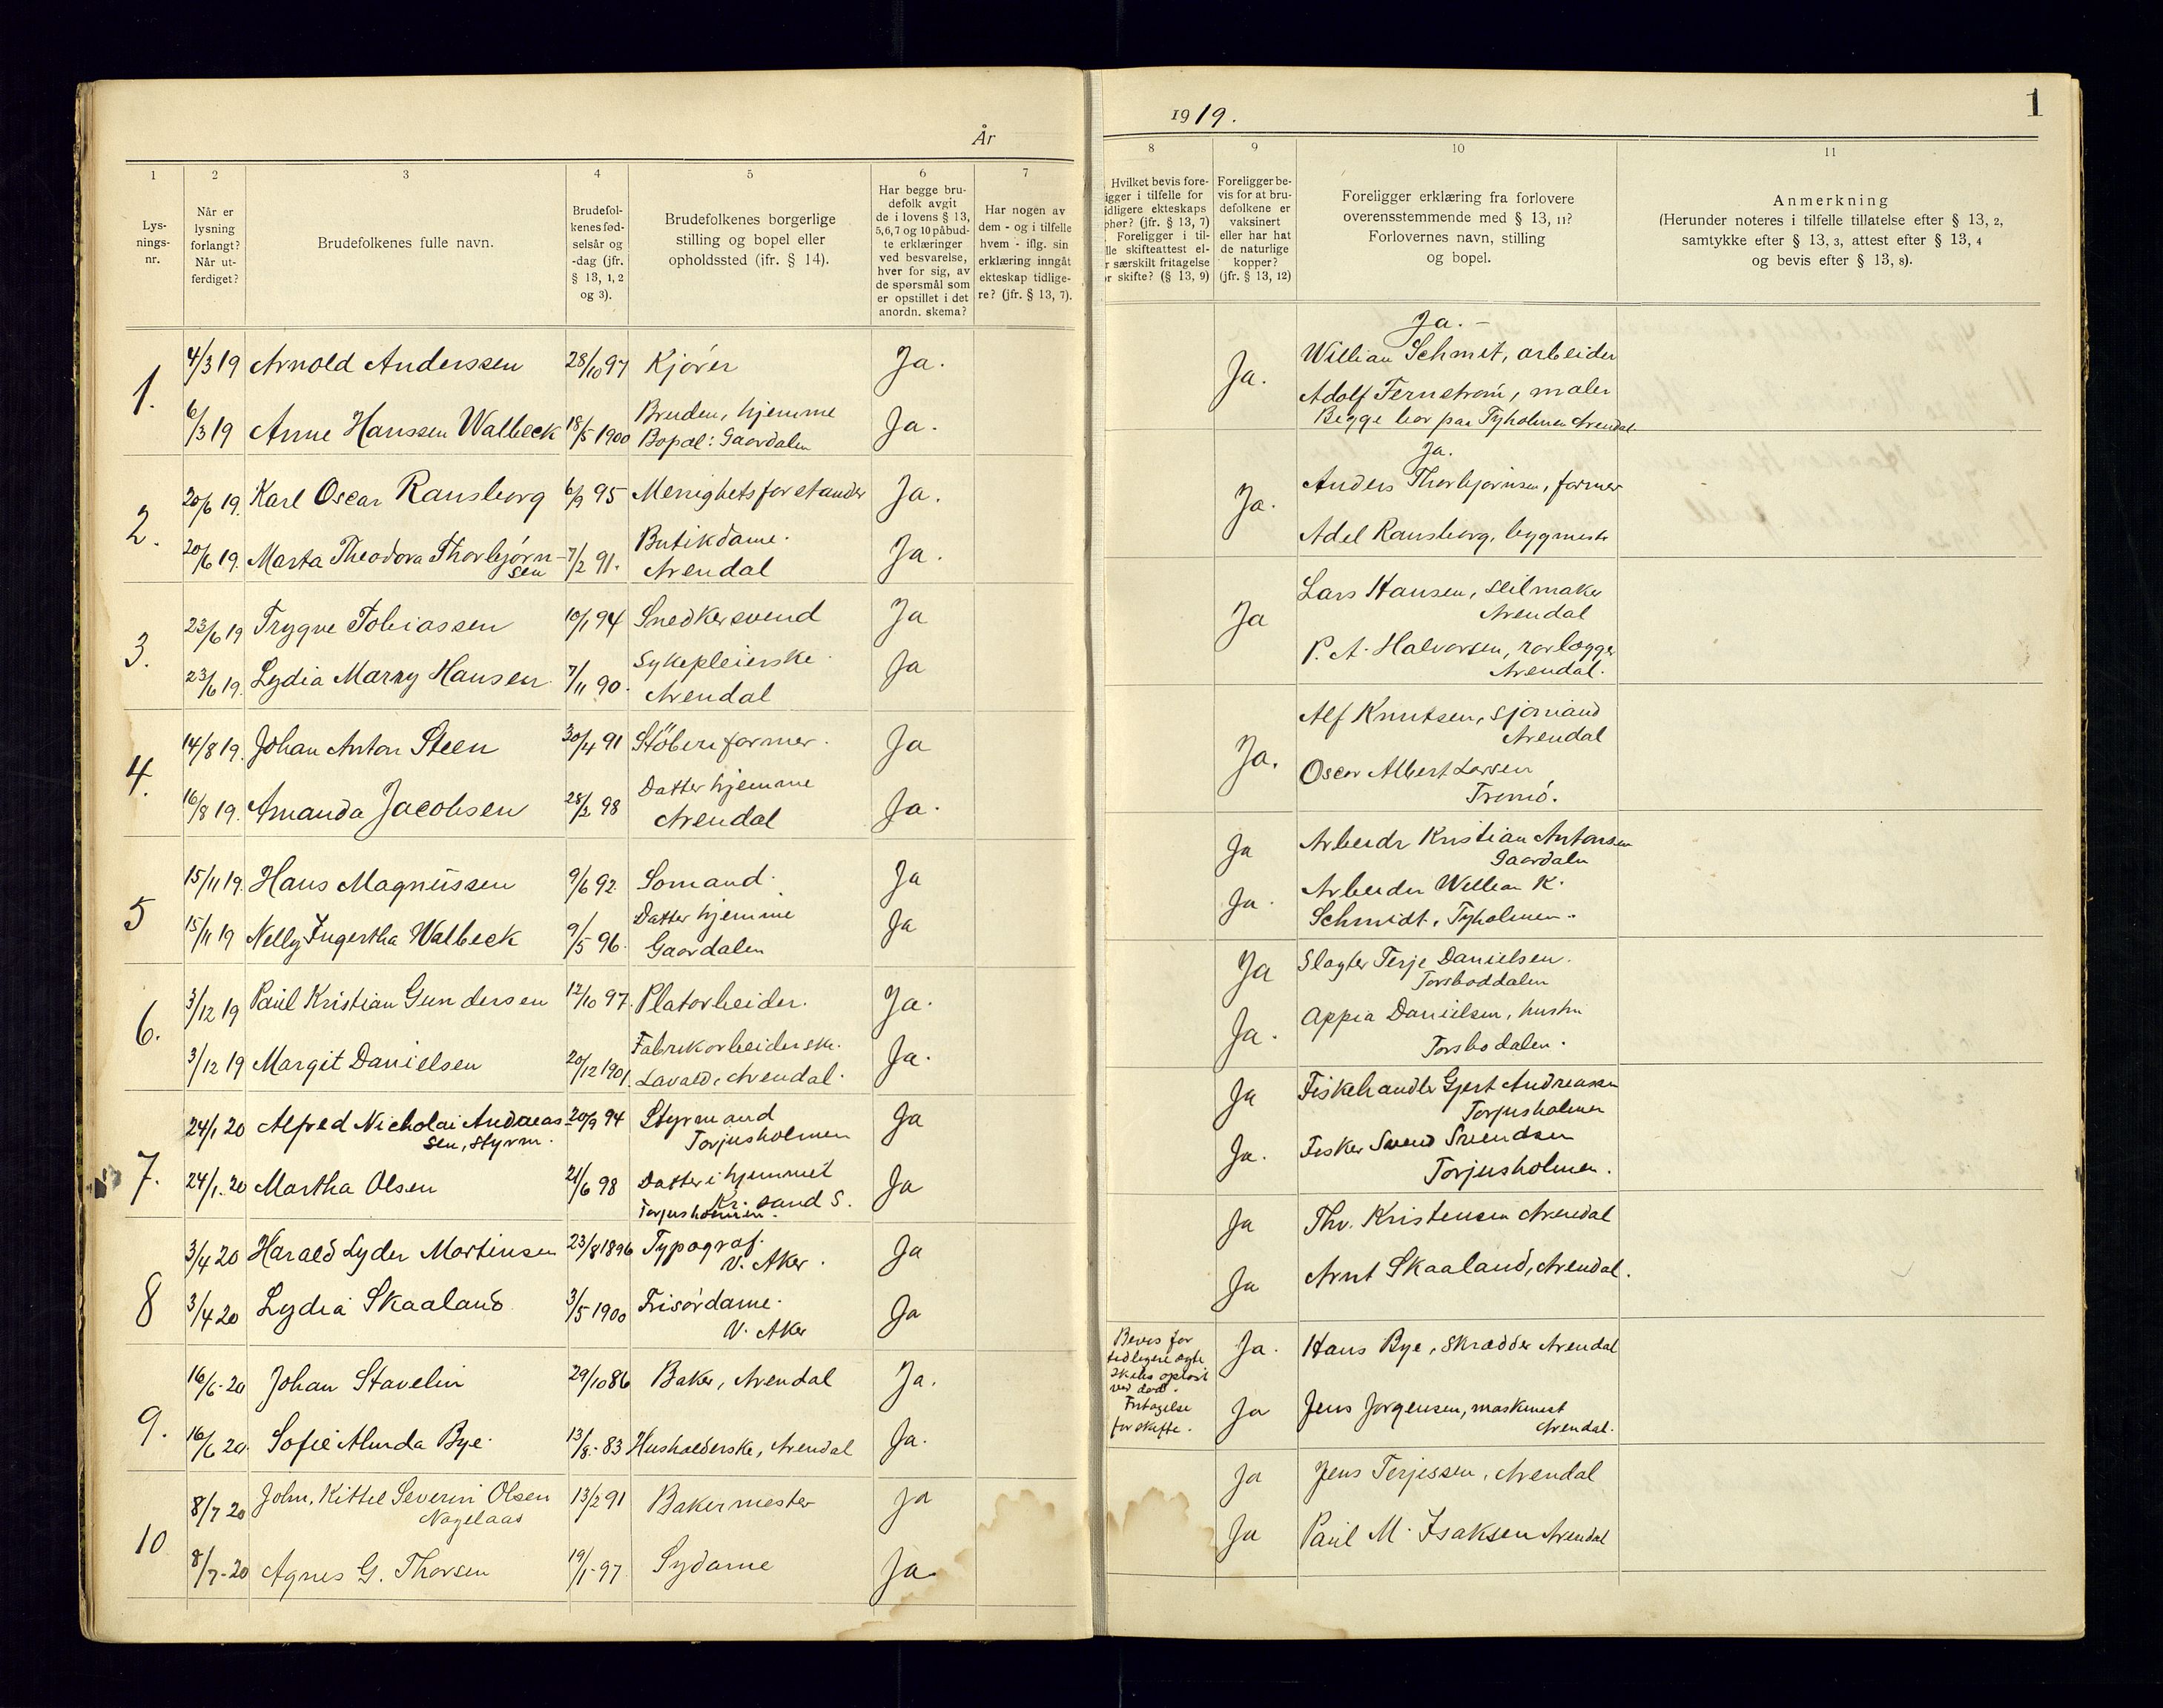 År
1919.
1
1
2
3
4
5
6
7
8
9
10
11
Lys-
nings-
nr.
Når er
lysning
forlangt?
Når ut-
ferdiget?
Brudefolkenes fulle navn.
Brudefol-
kenes fød-
selsår og
-dag (jfr.
§ 13, 1, 2
og 3).
Brudefolkenes borgerlige
stilling og bopel eller
opholdssted (jfr. § 14).
Har begge bru-
defolk avgit
de i lovens § 13,
5,6,7 og 10 påbud-
te erklæringer
ved besvarelse,
hver for sig, av
de spørsmål som
er opstillet i det
anordn. skema?
Har nogen av
dem - og i tilfelle
hvem - iflg. sin
erklæring inngåt
ekteskap tidlige-
re? (jfr. § 13, 7).
Hvilket bevis fore-
igger i tilfelle for
idligere ekteskaps
phør? (jfr. § 13, 7)
Foreligger i til-
lle skifteattest el-
r særskilt fritagelse
or skifte? (§ 13, 9)
Foreligger be-
vis for at bru-
defolkene er
vaksinert
eller har hat
de naturlige
kopper?
(jfr. § 13, 12)
Foreligger erklæring fra forlovere
overensstemmende med § 13, 11?
Forlovernes navn, stilling
og bopel.
Anmerkning
(Herunder noteres i tilfelle tillatelse efter § 13, 2,
samtykke efter § 13, 3, attest efter § 13, 4
og bevis efter § 13, 8).
1.
4/3 19 Arnold Anderssen 28/10 97 Kjører Ja.
6/3 19 Anne Hanssen Walbeck 18/5 1900 Bruden, hjemme
Bopæl: Gaardalen Ja.
Ja.
Ja. -
William Schmit, arbeider
Adolf Fernstrøm, maler
Begge bor paa Tyholmen Arendal
2.
20/6 19. Karl Oscar Ransborg 6/9 95 Menighetsforstander Ja.
20/6 19. Marta Theodora Thorbjørn-
sen 7/2 91. Butikdame.
Arendal Ja.
Ja.
Ja.
Anders Thorbjørnsen, former
Adel Ransborg, bygmestr
3.
23/6 19 Trygve Tobiassen 10/1 94 Snedkersvend Ja
23/6 19. Lydia Marry Hansen 7/11 90. Sykepleierske.
Arendal Ja
Ja
Lars Hansen, seilmaker
Arendal
P. A. Halvorsen, rørlægger
Arendal.
4.
14/8 19. Johan Anton Steen 30/4 91 Støberiformer. Ja
16/8 19. Amanda Jacobsen 28/2 98 Datter hjemme
Arendal Ja.
Ja.
Alf Knutsen, sjømand
Arendal
Oscar Albert Larsen
Tromø.
5
15/11 19. Hans Magnussen 9/6 92 Sømand. Ja
15/11 19 Nelly Ingertha Walbeck 9/5 96. Datter hjemme
Gaardalen Ja
Ja
Arbeidr Kristian Antonsen
Gaardalen
Ja.
Arbeider William K.
Schmidt. Tyholmen.
6.
3/12 19 Paul Kristian Gundersen 12/10 97. Platarbeider. Ja.
3/12 19 Margit Danielsen 20/12 1901. Fabrikarbeiderske.
Arendal. Ja.
Ja
Slagter Terje Danielsen.
Torsboddalen
Ja.
Appia Danielsen, hustru
Torsbodalen.
7.
24/1 20 Alfred Nicholai Andreas-
sen, styrm. 20/9 94 Styrmand
Torjusholmen Ja
24/1. 20 Martha Olsen 21/6 98 Datter i hjemmet
Kr. sand S.
Torjusholmen. Ja
Ja
Fiskehandler Gjert Andreassen
Torjusholmen
Ja.
Fisker Svend Svendsen
Torjusholmen.
8
3/4 20 Harald Lyder Martinsen 23/8 1896 Typograf.
V. Aker. Ja
3/4 20 Lydia Skaaland 3/5 1900 Frisørdame.
V. Aker Ja
Ja
Thv. Kristensen Arendal
Ja
Arnt Skaaland, Arendal.
9.
16/6-20 Johan Stavelin 29/10 86 Baker, Arendal Ja.
16/6 20 Sofie Alinda Bye. 13/8-83 Husholderske, Arendal Ja.
Bevis for
tidligere egte
skabs opløst
ved død.
Fritagelse
for skifte.
Ja.
Hans Bye, Skrædder Arendal
Ja
Jens Jørgensen, maskinist
Arendal.
10
8/7 20 John, Kittel Severin Olsen
Nagelaas 13/2 91 Bakermester Ja
8/7-20 Agnes G. Thorsen 19/1-97 Sydame Ja.
Ja
Jens Terjessen, Arendal
Ja
Paul M. Isaksen Arendal